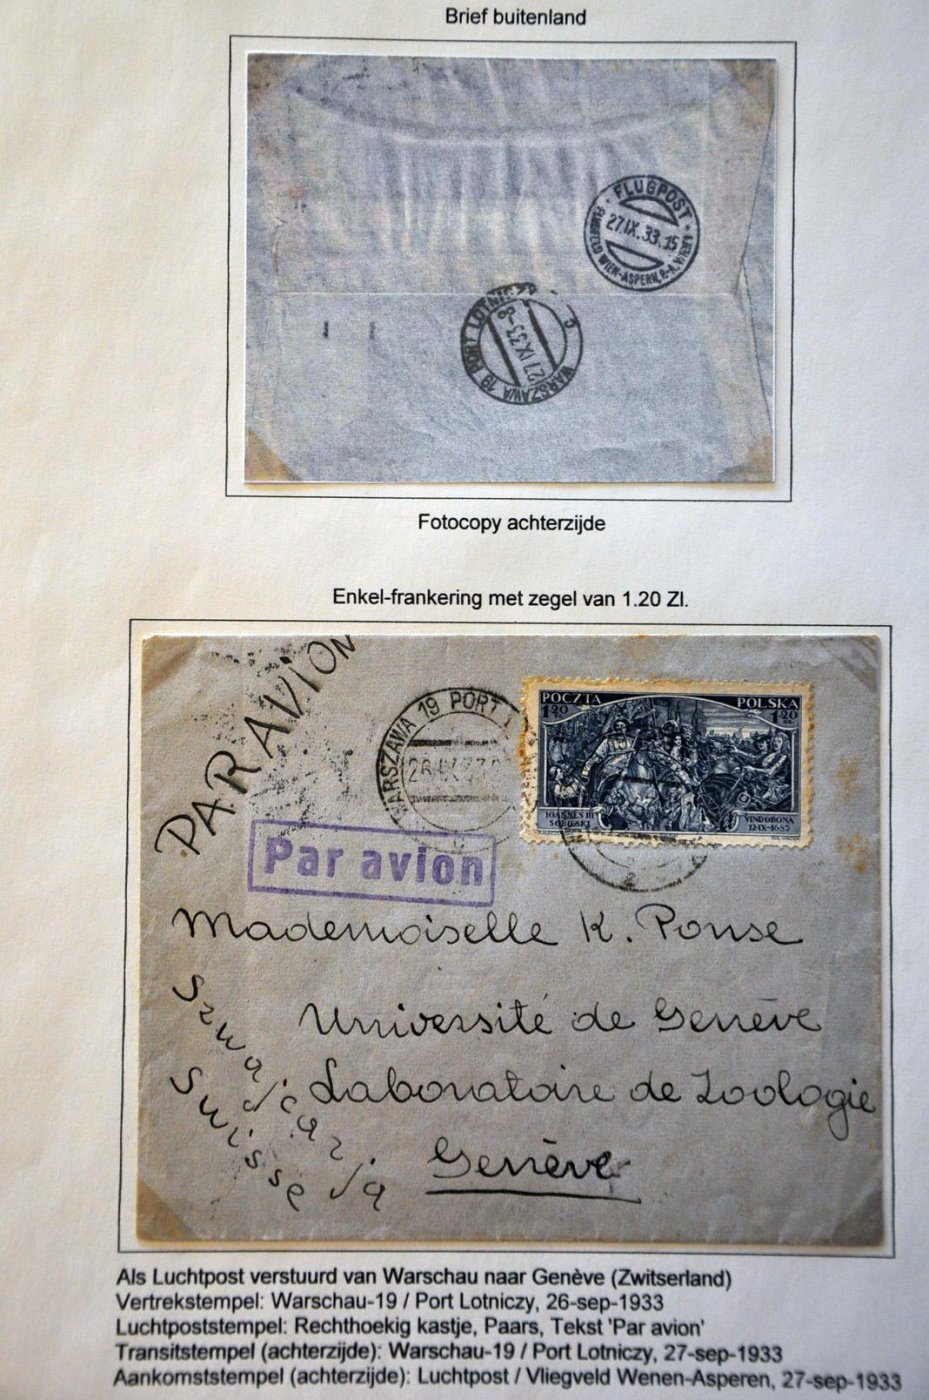 Brief buitenland
FLUGPOST
27.IX.33.15
FLUGFELD WIEN-ASPERN
WARSZAWA 19 PORT LOTNICZY
27 IX.33-8
Fotocopy achterzijde
Enkel-frankering met zegel van 1.20 Zl.
PAR AVION
WARSZAWA 19 PORT
26.IX.33
POCZTA POLSKA
1.20 1.20
IOANNES III SOBIESKI
VINDOBONA 12-IX-1683
Par avion
Mademoiselle K. Ponse
Université de Genève
Laboratoire de Zoologie
Genève
Szwajcarja
Suisse
Als Luchtpost verstuurd van Warschau naar Genève (Zwitserland)
Vertrekstempel: Warschau-19 / Port Lotniczy, 26-sep-1933
Luchtpoststempel: Rechthoekig kastje, Paars, Tekst 'Par avion'
Transitstempel (achterzijde): Warschau-19 / Port Lotniczy, 27-sep-1933
Aankomststempel (achterzijde): Luchtpost / Vliegveld Wenen-Asperen, 27-sep-1933